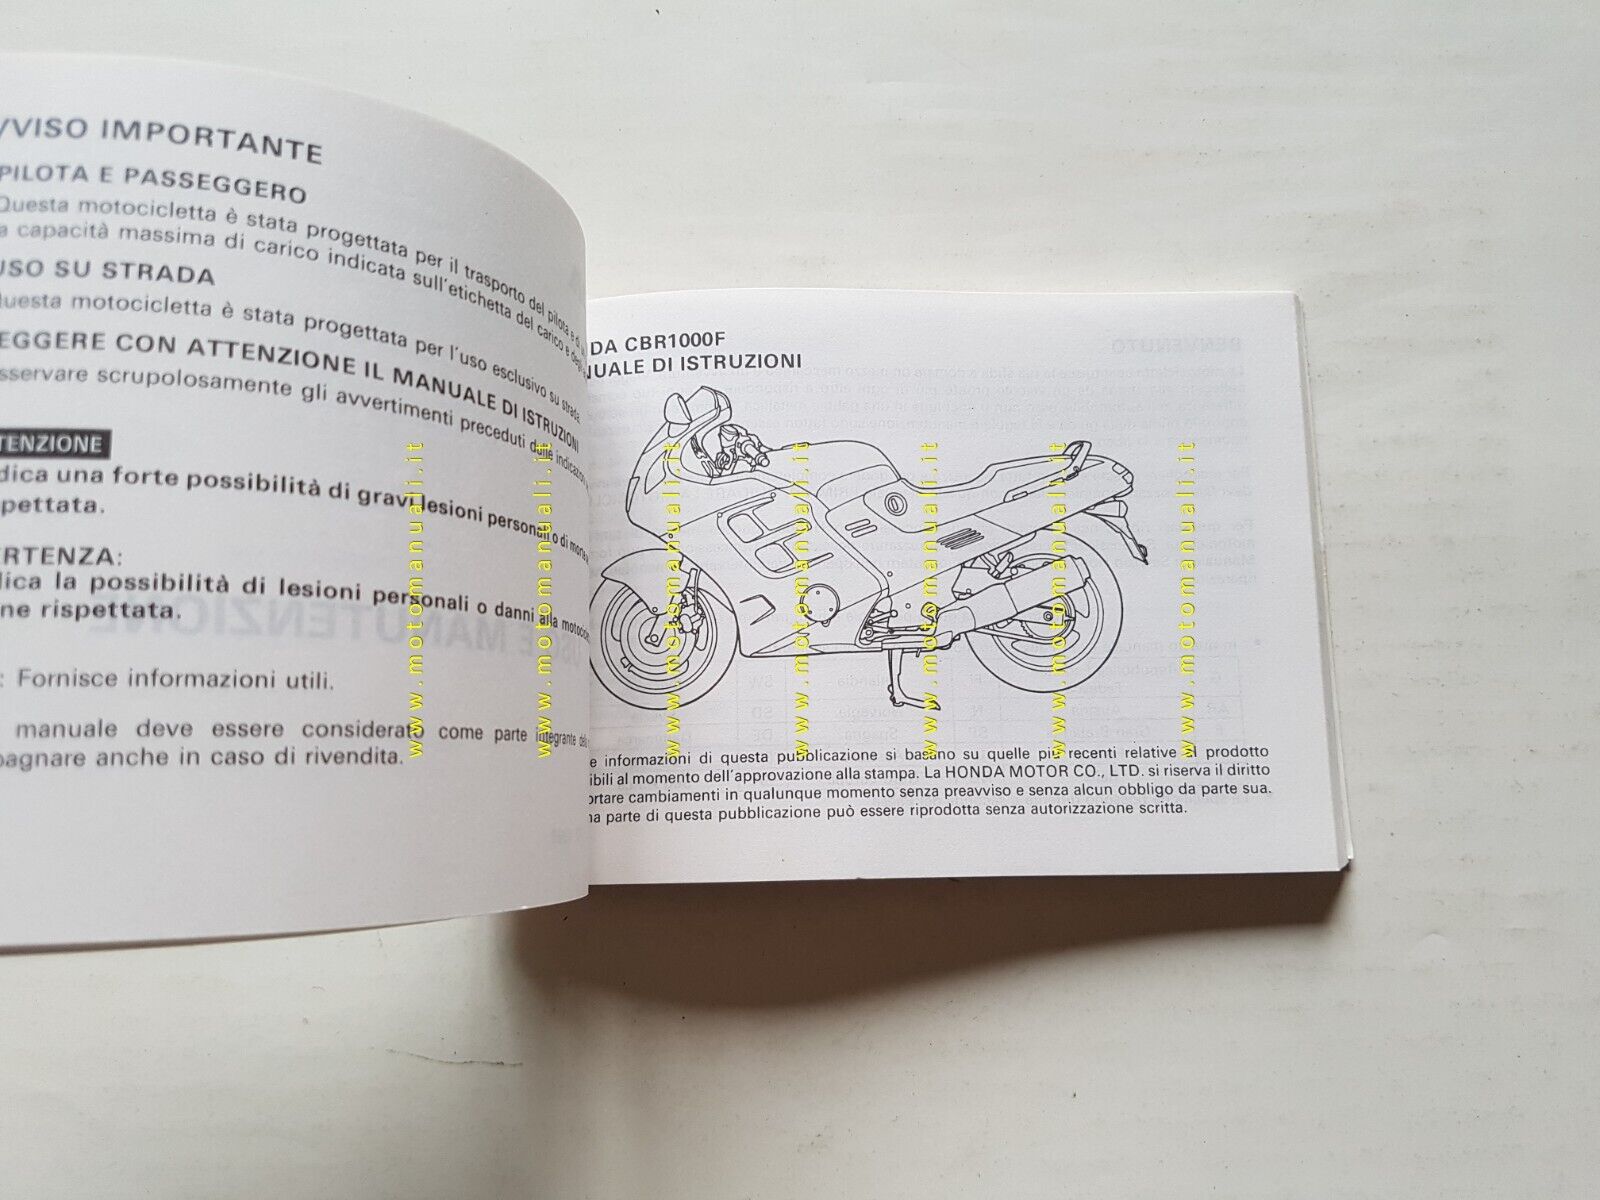 VVISO IMPORTANTE
PILOTA E PASSEGGERO
Questa motocicletta è stata progettata per il trasporto del pilota e di
a capacità massima di carico indicata sull'etichetta del carico e degli
USO SU STRADA
Questa motocicletta è stata progettata per l'uso esclusivo su strada.
EGGERE CON ATTENZIONE IL MANUALE DI ISTRUZIONI
sservare scrupolosamente gli avvertimenti preceduti dalle indicazioni
TENZIONE
dica una forte possibilità di gravi lesioni personali o di morte
spettata.
ERTENZA:
dica la possibilità di lesioni personali o danni alla motocicletta
ne rispettata.
: Fornisce informazioni utili.
manuale deve essere considerato come parte integrante della
pagnare anche in caso di rivendita.
DA CBR1000F
NUALE DI ISTRUZIONI
e informazioni di questa pubblicazione si basano su quelle più recenti relative al prodotto
ibili al momento dell'approvazione alla stampa. La HONDA MOTOR CO., LTD. si riserva il diritto
ortare cambiamenti in qualunque momento senza preavviso e senza alcun obbligo da parte sua.
na parte di questa pubblicazione può essere riprodotta senza autorizzazione scritta.
www.motomanuali.it
www.motomanuali.it
www.motomanuali.it
www.motomanuali.it
www.motomanuali.it
www.motomanuali.it
www.motomanuali.it